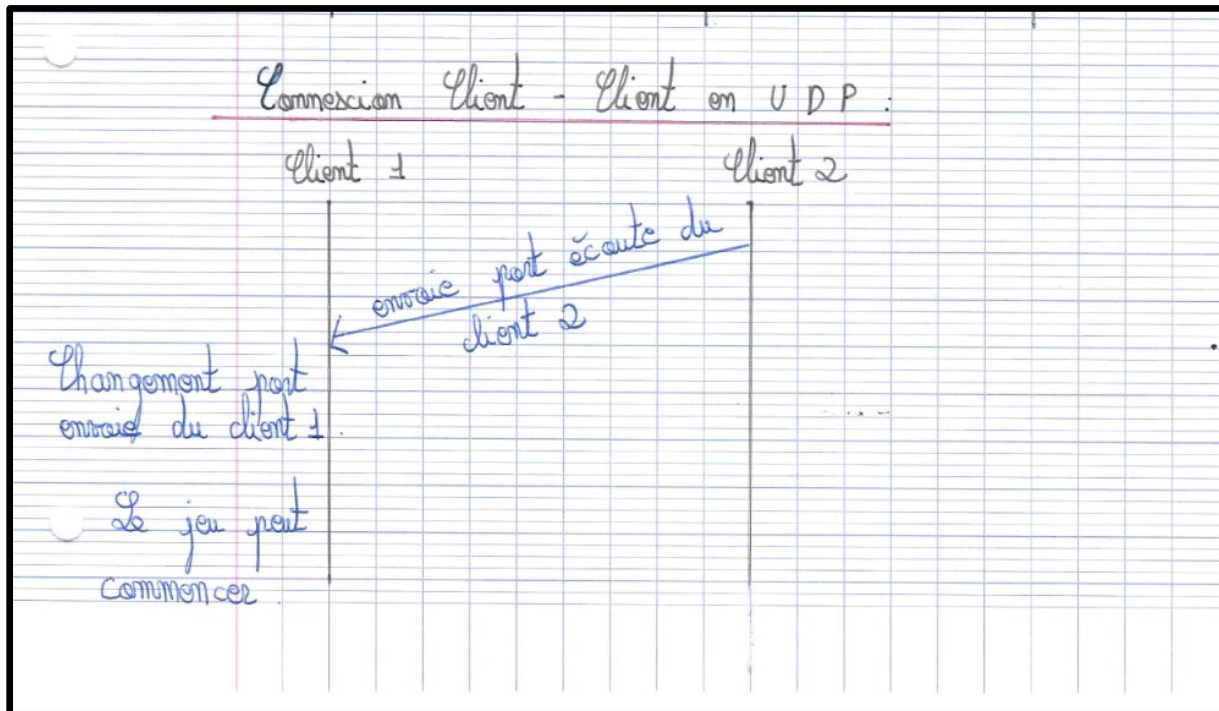 Connexion Client - Client en UDP :
Client 1 Client 2
envoie port écoute du
client 2
Changement port
envoie du client 1.
Le jeu peut
commencer